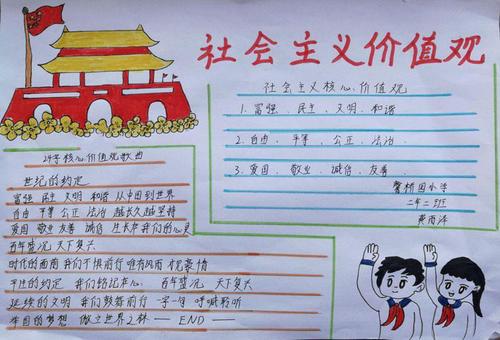 社会主义价值观
社会主义核心价值观
1. 富强、民主、文明、和谐
2. 自由、平等、公正、法治、
3. 爱国、敬业、诚信、友善
桥园小学
二年二班
24字核心价值观歌曲
世纪的约定
富强 民主 文明 和谐 从中国到世界
自由 平等 公正 法治 越长久越坚持
爱国 敬业 友善 诚信 在我们的心灵
百年盛况 天下复兴
时代的画 我们不惧前行 唯有风雨 豪情
平生的约定 我们铭记本心 百年盛况 天下复兴
延续的文明 我们鼓舞前行 一字一句 呼喊聆听
中国的梦想 傲立世界之林 — END —